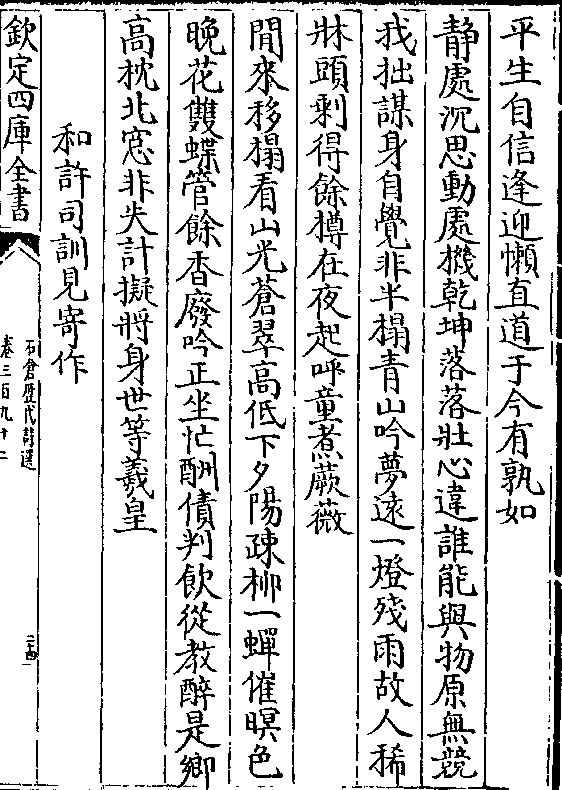 平生自信逢迎懶直道于今有孰如
静處沉思動處機乾坤落落壯心違誰能與物原無競
我拙謀身自覺非半榻青山吟夢逺一燈殘雨故人稀
牀頭剩得餘樽在夜起呼童煮蕨薇
閒來移榻看山光蒼翠高低下夕陽疎栁一蟬催暝色
晚花雙蝶管餘香廢吟正坐忙酬債判飲從教醉是鄉
高枕北窓非失計擬將身世等羲皇
和許司訓見寄作
欽定四庫全書
石倉歷代詩選
卷三百九十二
二十四